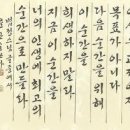 목표가 아니다
다음 순간을 위해
이 순간을
희생하지 말라
지금 이 순간을
너의 인생에 최고의
순간으로 만들라